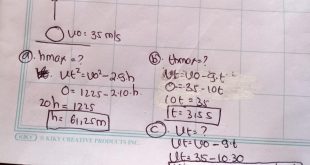 v0 = 35 m/s
a. hmax = ?
vt² = v0² - 2.g.h
0 = 1225 - 2.10.h
20h = 1225
h = 61,25m
b. thmax = ?
vt = v0 - g.t
0 = 35 - 10t
10t = 35
t = 3,5 s
c. vt = ?
vt = v0 - g.t
vt = 35 - 10.30
KIKY © KIKY CREATIVE PRODUCTS INC.